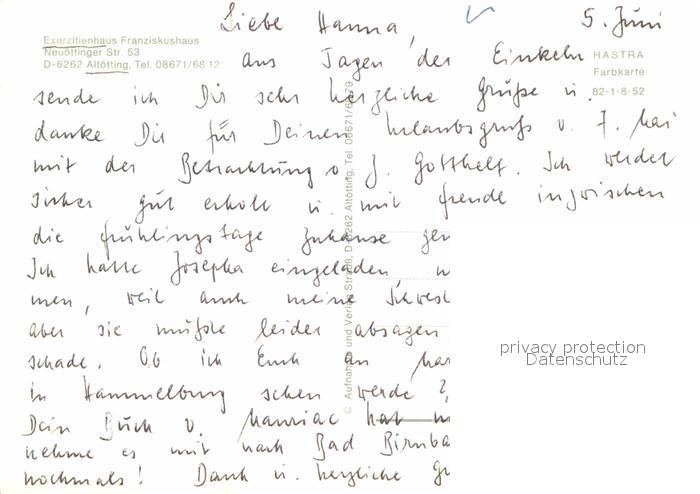 Liebe Hanna, 5. Juni
Exerzitienhaus Franziskushaus
Neuöttinger Str. 53
D-8262 Altötting, Tel. 08671/68 12
HASTRA
Farbkarte
82-1-8-52
aus Tagen der Einkehr
sende ich Dir sehr herzliche Grüße u.
danke Dir für Deinen Urlaubsgruß v. 7. Mai
mit der Betrachtung v. J. Gotthelf. Ich werdet
sicher gut erholt u. mit Freude inzwischen
die Frühlingstage zuhause
Ich hatte Josepha eingeladen,
men, weil auch meine Schwest
aber sie mußte leider absagen
schade. Ob ich Euch an
in Hammelburg sehen werde?
Dein Buch v. Mauriac hat
nehme es mit nach Bad Birnba
nochmals! Dank u. herzliche Gr
© Aufnahme und Verlag Strauß, D-8262 Altötting, Tel. 08671/6879
privacy protection
Datenschutz